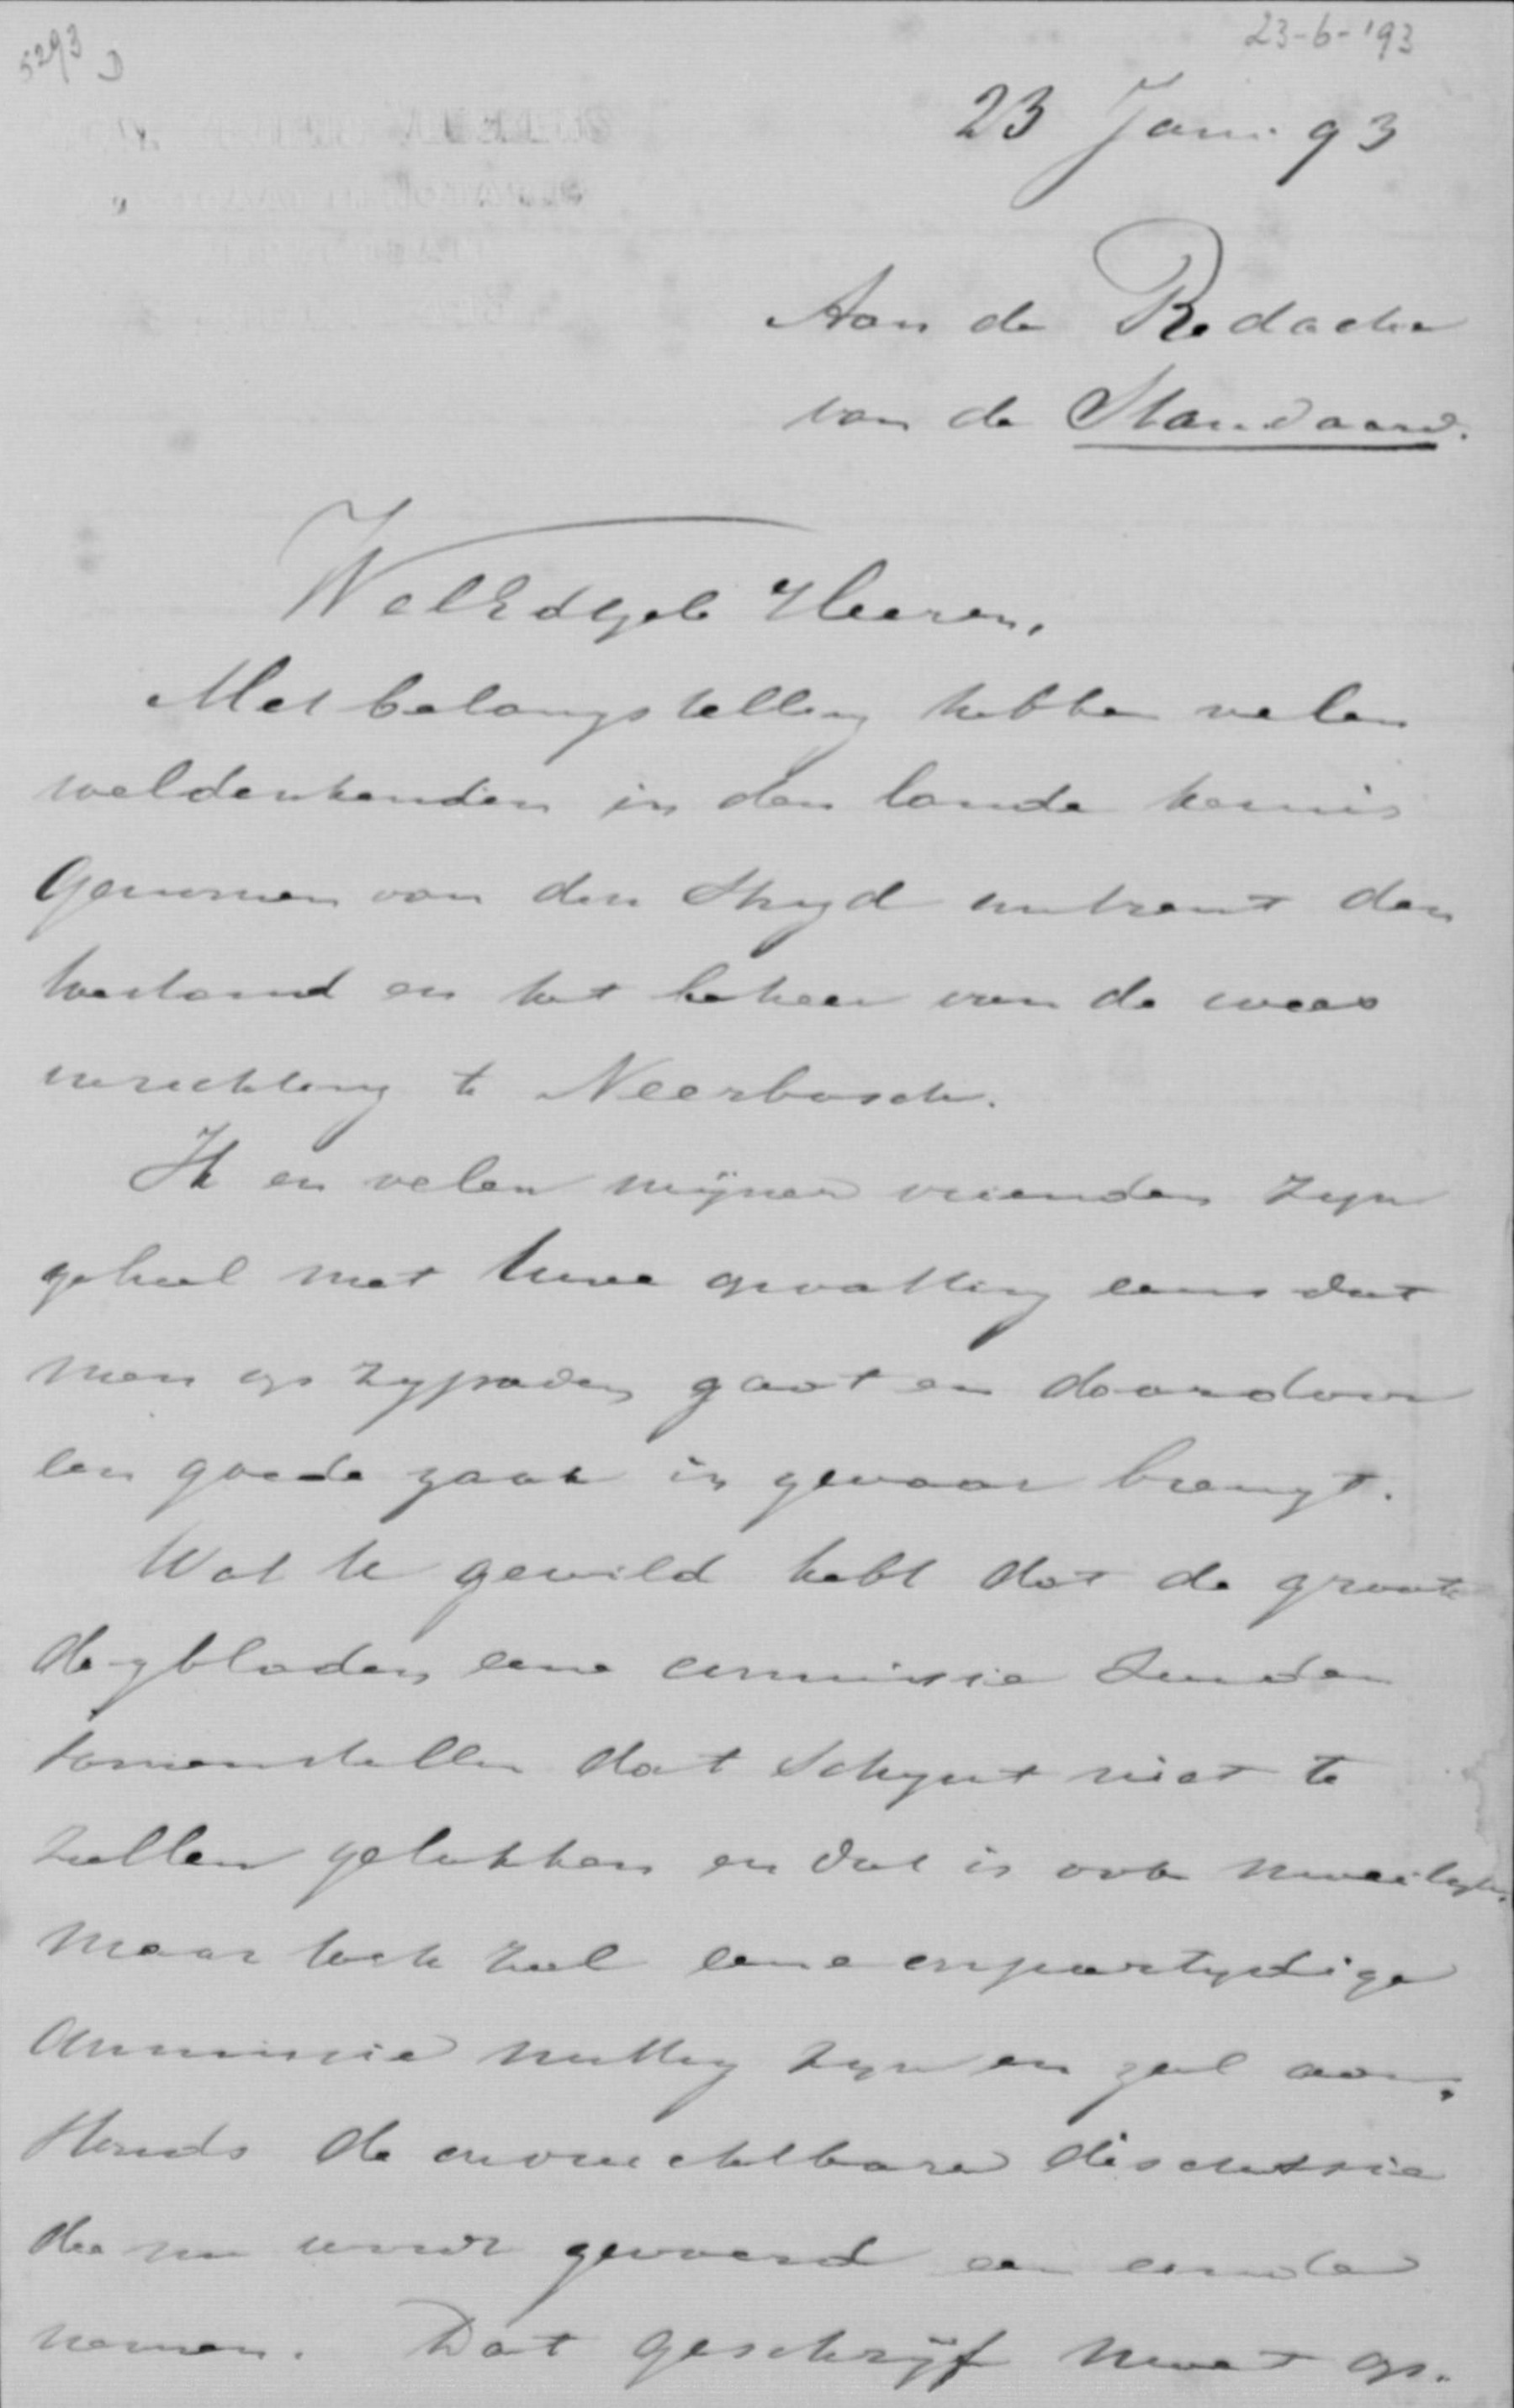 5293 D
23-6-'93
23 Juni 93
Aan de Redactie
van de Standaard.
WelEdGeb Heeren,
Met belangstelling hebben velen
weldenkenden in den lande kennis
genomen van den Stryd omtrent den
toestand en het beheer van de wees
inrichting te Neerbosch.
Ik en velen mijner vrienden zyn
geheel met Uwe opvatting eens dat
men op zypaden gaat en daardoor
een goede zaak in gevaar brengt.
Wat U gewild hebt dat de groote
dagbladen eene commissie zouden
samenstellen dat schynt niet te
zullen gelukken en dat is ook moeilyk,
maar toch zal eene onpartydige
Commissie nuttig zyn en zal aan,
stonds de onvruchtbare discussie
die nu wordt gevoerd een einde
nemen. Dat geschrijf moet op.